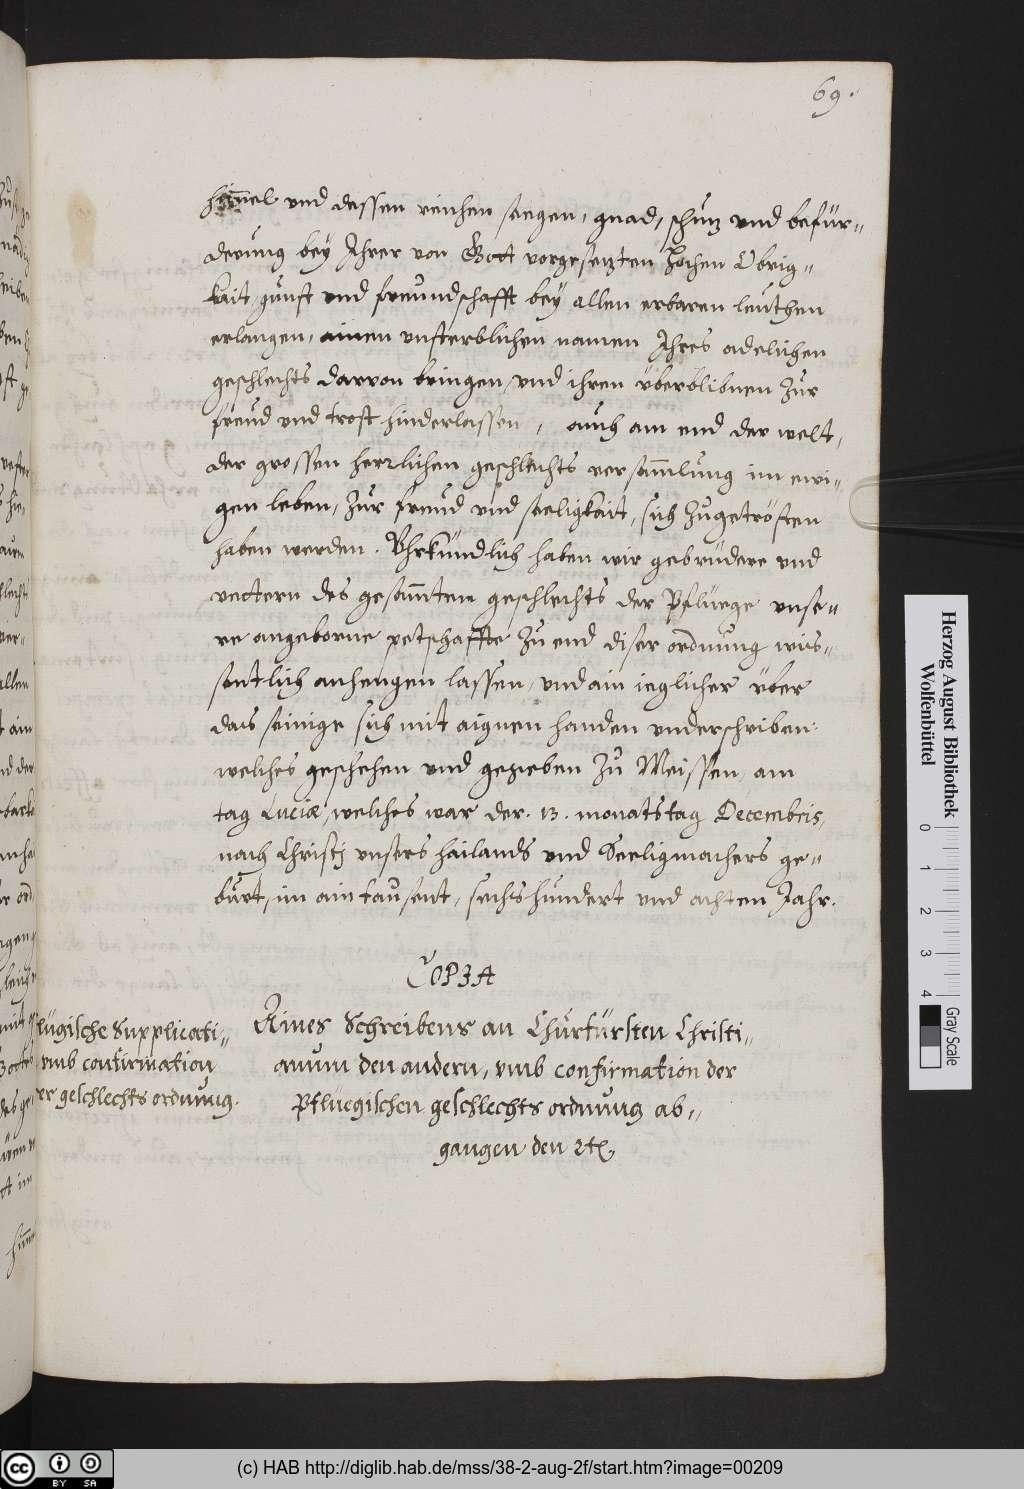 69.
himmel und dessen reichen seegen, gnad, schutz und befür„
derung bey Ihrer von Gott vorgesetzten Hochen Obrig„
kait, gunst und freundschafft bey allen erbaren leuthen
erlangen, ainen unsterblichen namen Ihres adelichen
geschlechts darvon bringen, und ihren überblibnen zur
freud und trost hinderlassen, auch am end der welt,
der grossen herrlichen geschlechts versam̄lung im ewi„
gen leben, zur freud und seeligkait, sich zugetrösten
haben werden. Uhrkündlich haben wir gebrüdere und
vettern des gesam̄ten geschlechts der Pflüege unse„
re angeborne petschaffte zu end diser ordnung wis„
sentlich anhengen lassen, und ain ieglicher über
das seinige sich mit aignen handen underschriben:
welches geschehen und gegeben zu Meissen, am
tag Luciæ, welches war der. 13. monatstag Decembris,
nach Christj unsers hailands und Seeligmachers ge„
burt, im ain tausent, sechshundert und achten Jahr.
COPIA
Aines Schreibens an Churfürsten Christi„
anum den andern, umb confirmation der
Pfluegischen geschlechts ordnung ab„
gangen den 2t.
lügische Supplicati„
umb confirmation
er geschlechts ordnung.
Herzog August Bibliothek
Wolfenbüttel
0 1 2 3 4
Gray Scale
(c) HAB http://diglib.hab.de/mss/38-2-aug-2f/start.htm?image=00209
CC BY SA